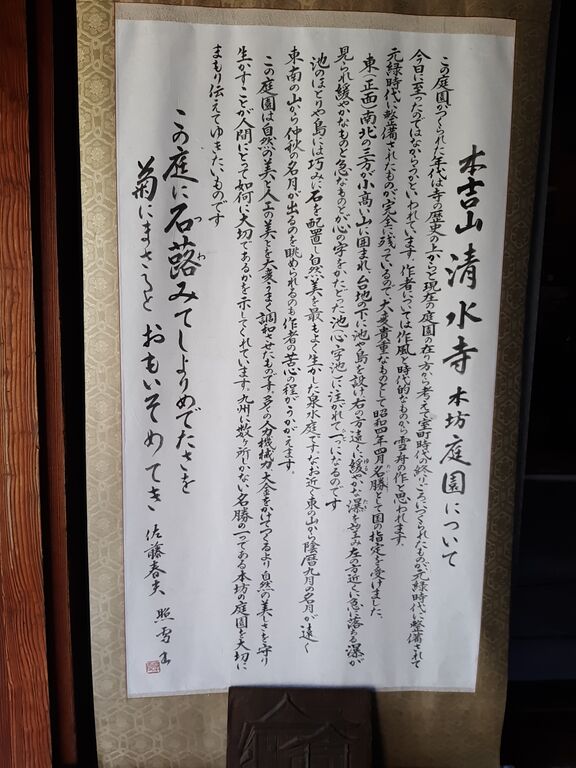 本吉山 清水寺 本坊庭園について
この庭園がつくられた年代は寺の歴史の上からと現在の庭園の在り方から考えて室町時代の終りころにつくられたものが元緑時代に整備されて
今日に至ったのではなかろうかといわれています。作者については作風と時代的なものから雪舟の作と思われます。
元緑時代に整備されたものが完全に残っているので、大変貴重なものとして昭和四年四月名勝として国の指定を受けました。
東(正面)南北の三方が小高い山に囲まれ、台地の下に池や島を設け右の方遠くに緩やかな瀑を望み左の方近くに急に落ちる瀑が
見られ緩やかなものと急なものとが心の字をかたどった池(心字池)に注がれて一つになるのです
池のほとりや島には巧みに石を配置し自然美を最もよく生かした泉水庭です。なお近く東の山から陰暦九月の名月が遠く
東南の山から仲秋の名月が出るのを眺められるのも作者の苦心の程がうかがえます。
この庭園は自然の美と人工の美とを大変うまく調和させたものです。多くの人力、機械力、大金をかけてつくるより自然の美しさを守り
生かすことが人間にとって如何に大切であるかを示してくれています。九州に数ヶ所しかない名勝の一つである本坊の庭園を大切に
まもり伝えてゆきたいものです
この庭に石蕗みてしよりめでたさを
わ
菊にまさると おもいそめてき 佐藤春夫 照雪